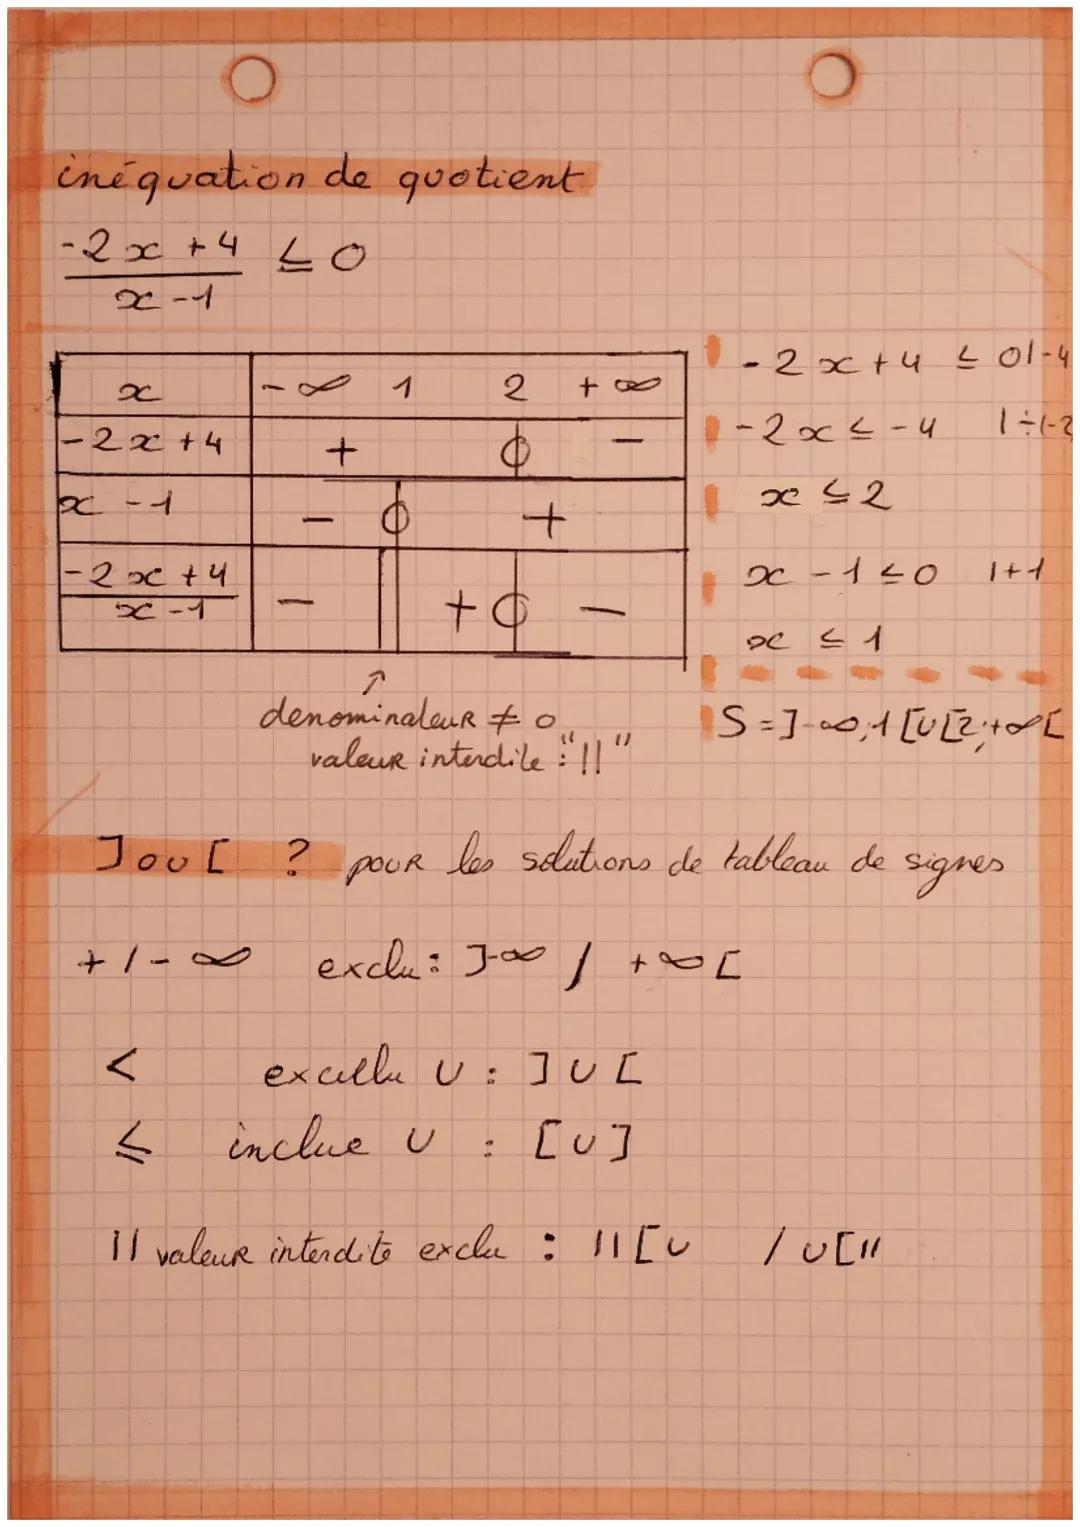 inéquation de quotient
-2x +4 ≤ 0
x -1
x -∞ 1 2 +∞
-2x +4 + 0 -
x -1 - 0 +
-2x +4 - || + 0 -
x -1
↗
denominateur ≠ 0
valeur interdite : "||"
-2x +4 ≤ 0 |-4
-2x ≤ -4 |÷(-2
x ≤ 2
x -1 ≤ 0 |+1
x ≤ 1
S = ]-∞;1[U[2;+∞[
] ou [ ? pour les solutions de tableau de signes
+/-∞ exclu : ]-∞ / +∞[
< excellu U : ]U[
≤ inclue U : [U]
|| valeur interdite exclu : ||[U / U[||